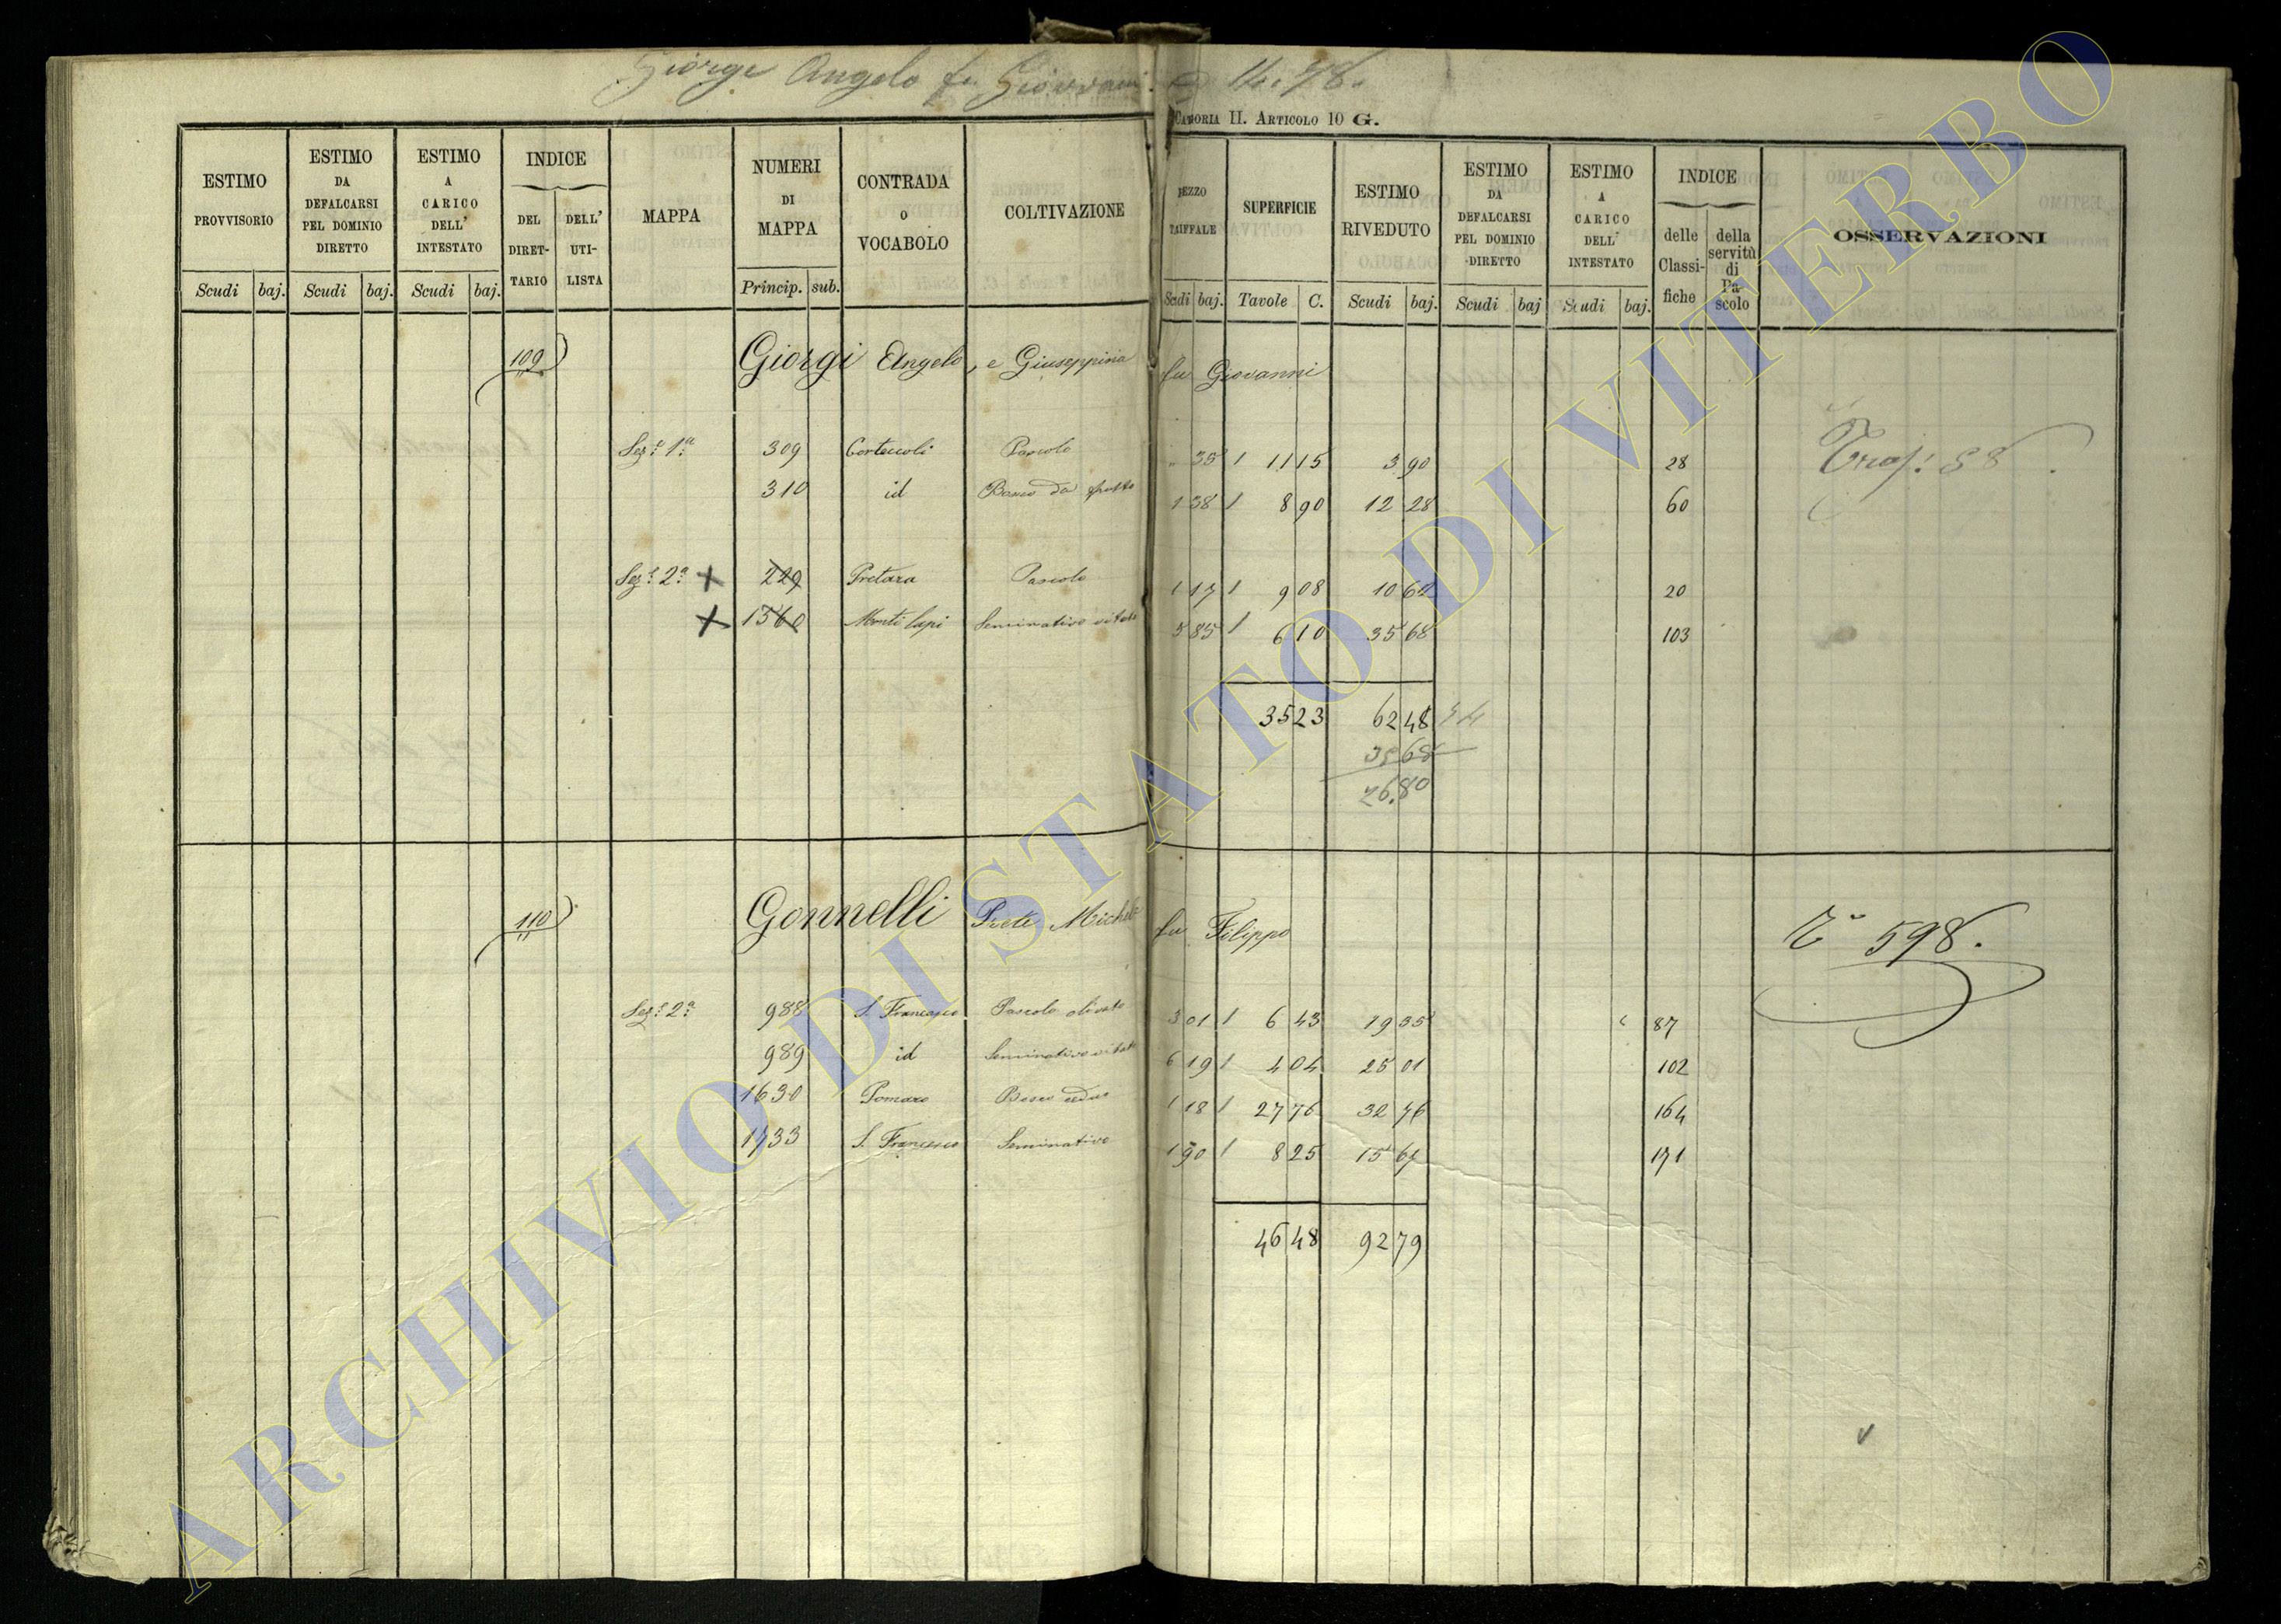 Giorgi Angelo fu Giovanni
CATEGORIA II. ARTICOLO 10 G.
ESTIMO PROVVISORIO
Scudi baj.
ESTIMO DA DEFALCARSI PEL DOMINIO DIRETTO
Scudi baj.
ESTIMO A CARICO DELL' INTESTATO
Scudi baj.
INDICE
DEL DIRET-TARIO
DELL' UTI-LISTA
MAPPA
NUMERI DI MAPPA
Princip. sub.
CONTRADA O VOCABOLO
COLTIVAZIONE
PEZZO TARIFFALE
Scudi baj.
SUPERFICIE
Tavole C.
ESTIMO RIVEDUTO
Scudi baj.
ESTIMO DA DEFALCARSI PEL DOMINIO DIRETTO
Scudi baj
ESTIMO A CARICO DELL' INTESTATO
Scudi baj.
INDICE
delle Classi-fiche
della servitù di Pa-scolo
OSSERVAZIONI
109 Giorgi Angelo, e Giuseppina fu Giovanni
Sez.e 1.a 309 Corteccoli Pascolo " 35 / 11 15 3 90 28
310 id Bosco da frutto 1 38 / 8 90 12 28 60
Sez.e 2.a X 229 Pretara Pascolo 1 17 / 9 08 10 62 20
X 1560 Monti lupi Seminativo vitato 5 85 / 6 10 35 68 103
35 23 62 48
35 68
26.80
110 Gonnelli Prete Michele fu Filippo
598.
Sez.e 2.a 988 S. Francesco Pascolo olivato 3 01 / 6 43 19 35 87
989 id Seminativo vitato 6 19 / 4 04 25 01 102
1630 Pomaro Bosco ceduo 1 18 / 27 76 32 76 164
1733 S. Francesco Seminativo 1 90 / 8 25 15 67 171
46 48 92 79
ARCHIVIO DI STATO DI VITERBO